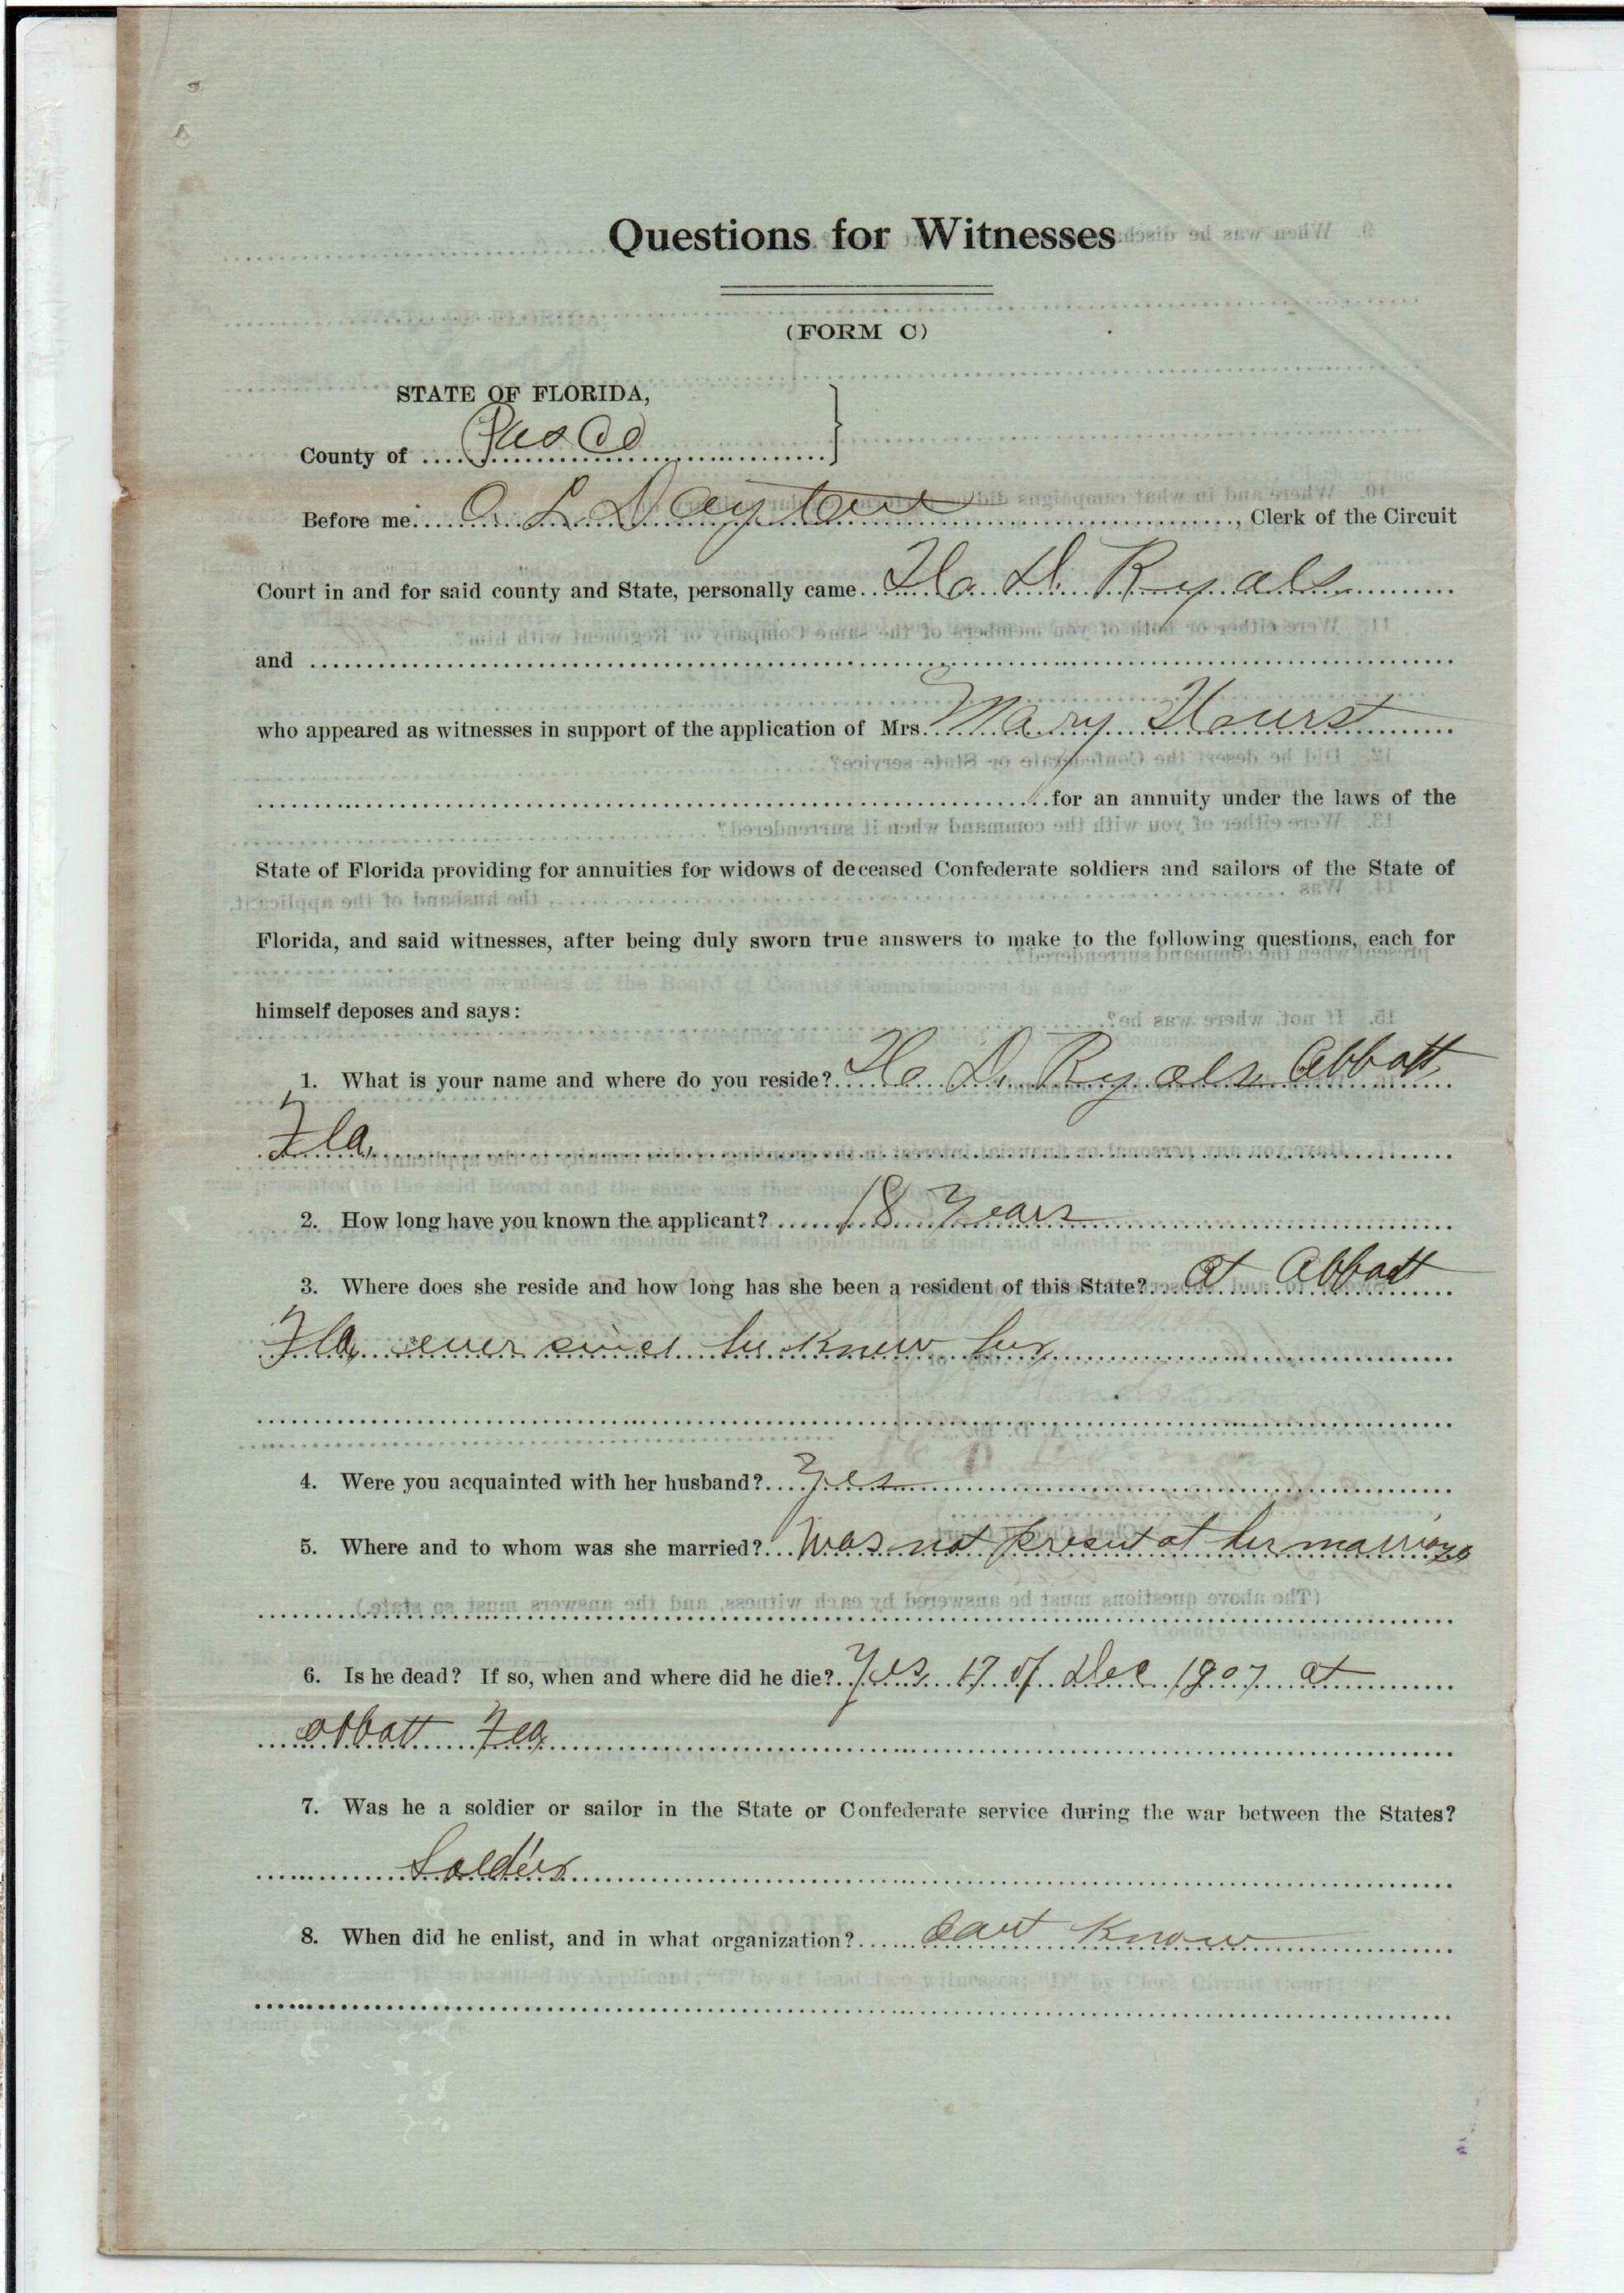 Questions for Witnesses
(FORM C)
STATE OF FLORIDA,
County of Pasco
Before me O. L. Dayton, Clerk of the Circuit
Court in and for said county and State, personally came H. D. Ryals
and
who appeared as witnesses in support of the application of Mrs. Mary Hurst
for an annuity under the laws of the
State of Florida providing for annuities for widows of deceased Confederate soldiers and sailors of the State of
Florida, and said witnesses, after being duly sworn true answers to make to the following questions, each for
himself deposes and says:
1. What is your name and where do you reside? H. D. Ryals Abbott
Fla.
2. How long have you known the applicant? 18 Years
3. Where does she reside and how long has she been a resident of this State? at Abbott
Fla ever since he knew her
4. Were you acquainted with her husband? Yes
5. Where and to whom was she married? Was not present at her marriage
6. Is he dead? If so, when and where did he die? Yes, 17 of Dec 1907 at
abbott Fla
7. Was he a soldier or sailor in the State or Confederate service during the war between the States?
Soldier
8. When did he enlist, and in what organization? cant Know